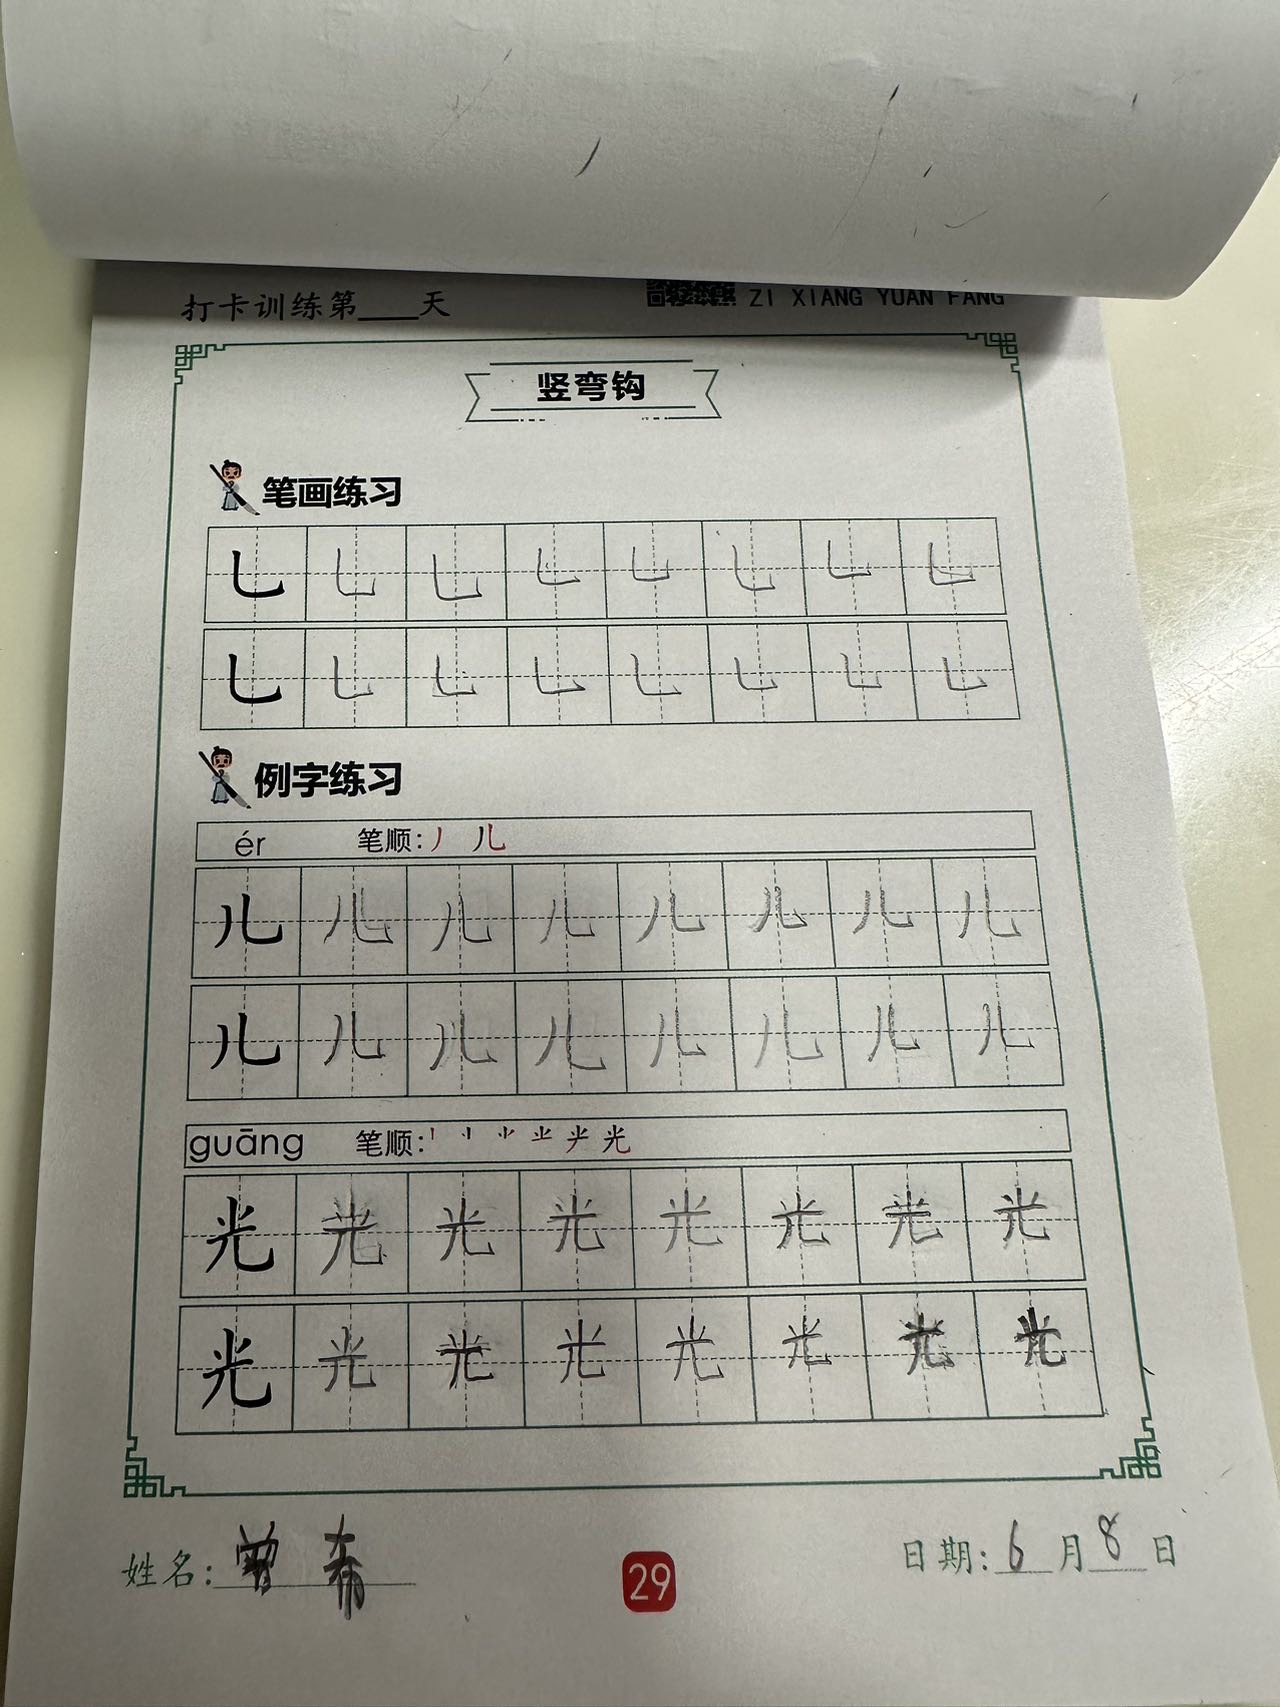 打卡训练第____天
ZI XIANG YUAN FANG
竖弯钩
笔画练习
乚 乚 乚 乚 乚 乚 乚 乚
乚 乚 乚 乚 乚 乚 乚 乚
例字练习
ér 笔顺:丿 儿
儿 儿 儿 儿 儿 儿 儿 儿
儿 儿 儿 儿 儿 儿 儿 儿
guāng 笔顺:
光 光 光 光 光 光 光 光
光 光 光 光 光 光 光 光
姓名: 曾
日期: 6 月 8 日
29